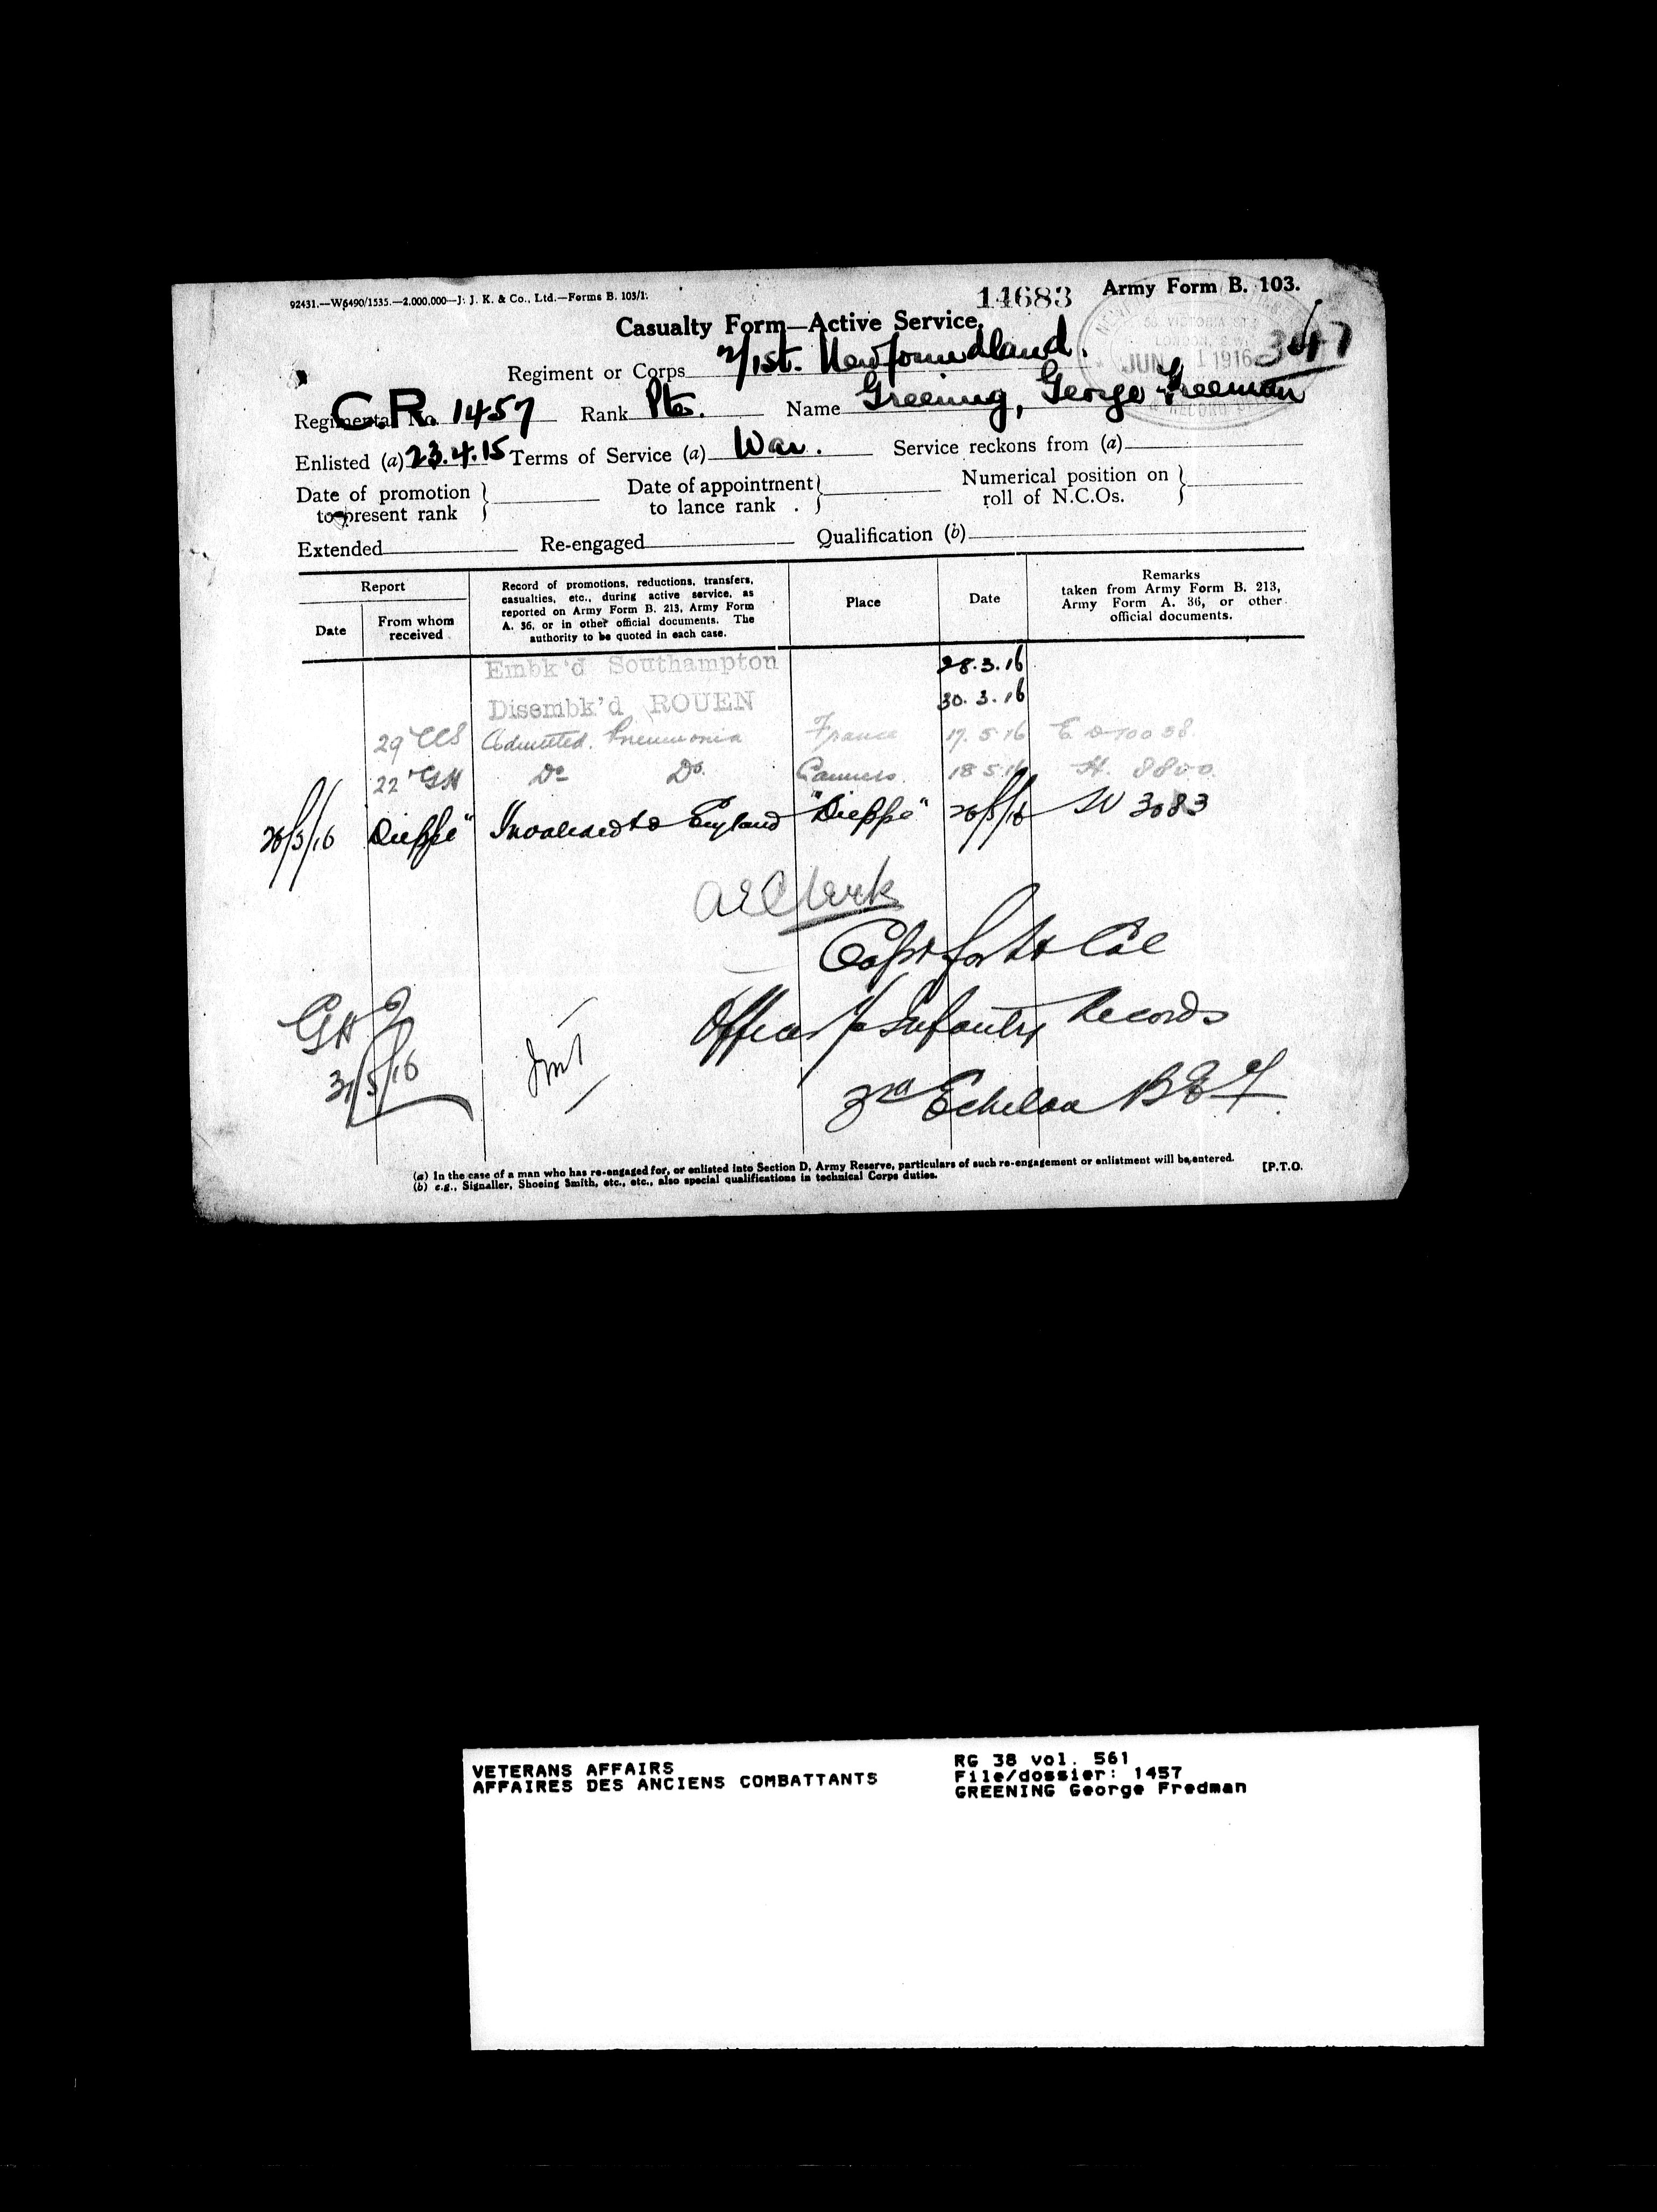 92431.—W6490/1535.—2,000,000—J. J. K. & Co., Ltd.—Forms B. 103/1.
14683
Army Form B. 103.
Casualty Form—Active Service.
JUN 1 1916
3047
Regiment or Corps 2/1st. Newfoundland.
Regimental No. C.R. 1457 Rank Pte. Name Greening, George Freeman
Enlisted (a) 23.4.15 Terms of Service (a) War. Service reckons from (a)
Date of promotion to present rank } Date of appointment to lance rank . } Numerical position on roll of N.C.Os. }
Extended Re-engaged Qualification (b)
Report
Date
From whom received
Record of promotions, reductions, transfers, casualties, etc., during active service, as reported on Army Form B. 213, Army Form A. 36, or in other official documents. The authority to be quoted in each case.
Place
Date
Remarks taken from Army Form B. 213, Army Form A. 36, or other official documents.
Embk'd Southampton 28.3.16
Disembk'd ROUEN 30.3.16
29 CCS Admitted. Pneumonia France 17.5.16
22 GH Do Do. Camiers. 18.5.16 H. 8800.
26/5/16 "Dieppe" Invalided to England "Dieppe" 26/5/16 W 3083
AEClerk
Capt for Lt Col
Officer i/c Infantry Records
3rd Echelon BEF
31/5/16
(a) In the case of a man who has re-engaged for, or enlisted into Section D, Army Reserve, particulars of such re-engagement or enlistment will be entered.
(b) e.g., Signaller, Shoeing Smith, etc., etc., also special qualifications in technical Corps duties.
[P.T.O.
VETERANS AFFAIRS
AFFAIRES DES ANCIENS COMBATTANTS
RG 38 vol. 561
File/dossier: 1457
GREENING George Fredman